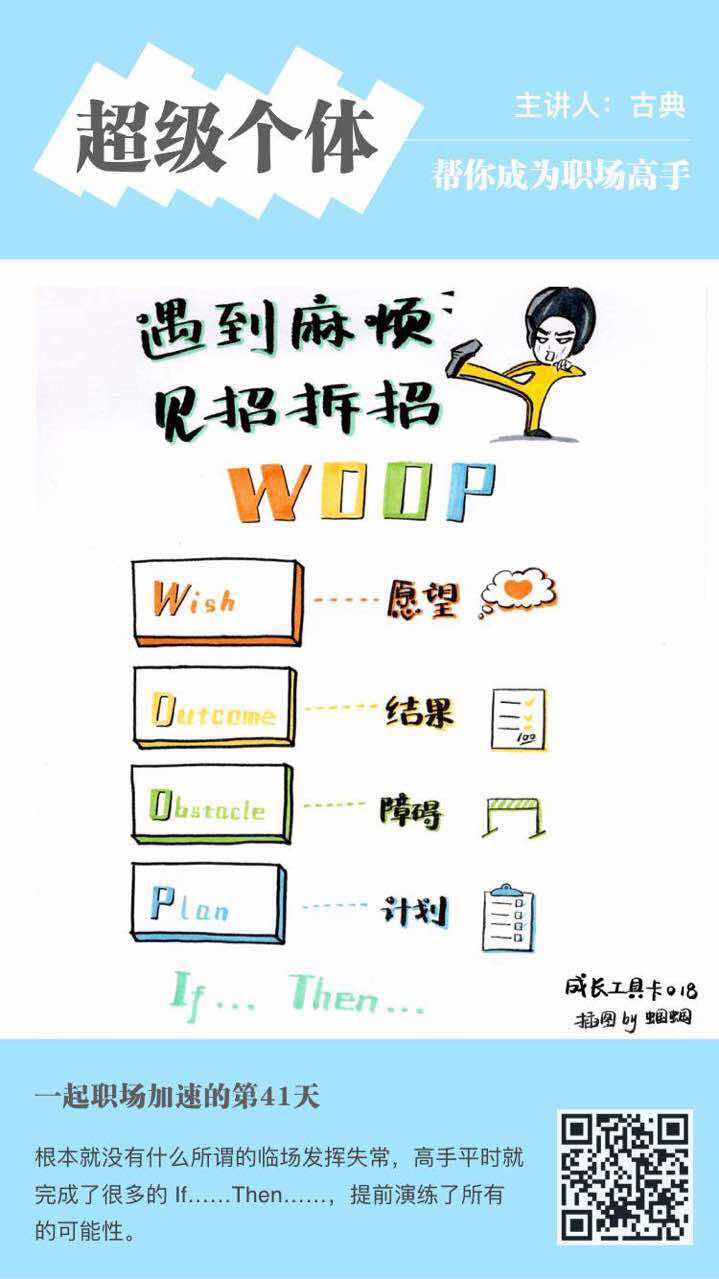 超级个体
主讲人：古典
帮你成为职场高手
遇到麻烦
见招拆招
WOOP
Wish 愿望
Outcome 结果
100
Obstacle 障碍
Plan 计划
If... Then...
成长工具卡018
插图 by 蝈蝈
一起职场加速的第41天
根本就没有什么所谓的临场发挥失常，高手平时就
完成了很多的 If……Then……，提前演练了所有
的可能性。